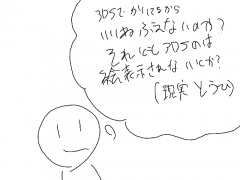 3DSでかいてるから
いいねふえないのか?
それとも3DSのは
絵表示されないとか?
(現実とうひ)